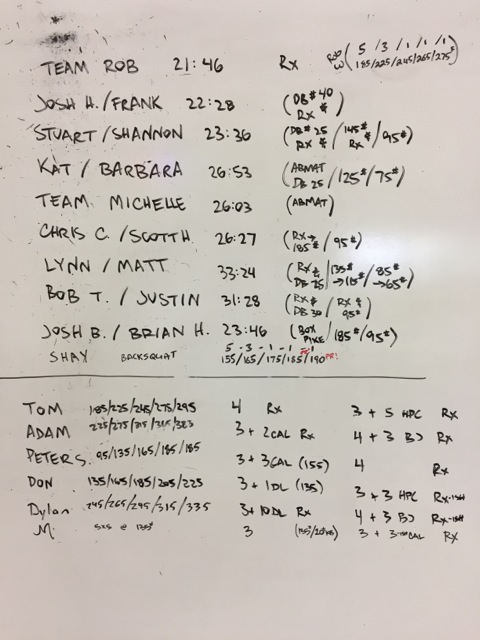 TEAM ROB 21:46 Rx (5/3/1/1/1
185/225/245/265/275#)
JOSH H./FRANK 22:28 (DB#40
Rx #)
STUART/SHANNON 23:36 (DB#25 / 145# / 95#)
Rx # Rx
KAT / BARBARA 26:53 (ABMAT / 125# / 75#)
DB 25
TEAM MICHELLE 26:03 (ABMAT)
CHRIS C. / SCOTT H 26:27 (Rx→ / 95#)
185#
LYNN / MATT 33:24 (Rx # / 135# / 85#
DB 25 →115# →65#)
BOB T. / JUSTIN 31:28 (Rx# / Rx #
DB 30 95#)
JOSH B. / BRIAN H. 23:46 (BOX / 185# / 95#)
PIKE
5 - 3 - 1 - 1 - 1
SHAY BACKSQUAT 135/165/175/185/190 PR!
TOM 185/225/245/275/295 4 Rx 3 + 5 HPC Rx
ADAM 225/275/315/365/383 3 + 2CAL Rx 4 + 3 BJ Rx
PETERS. 95/135/165/185/185 3 + 3CAL (155) 4 Rx
DON 135/165/185/205/225 3 + 1DL (135) 3 + 3 HPC Rx
Dylan 245/265/295/315/335 3 + 10DL Rx 4 + 3 BJ Rx
M. 5x5 @ 135# 3 3 + CAL Rx